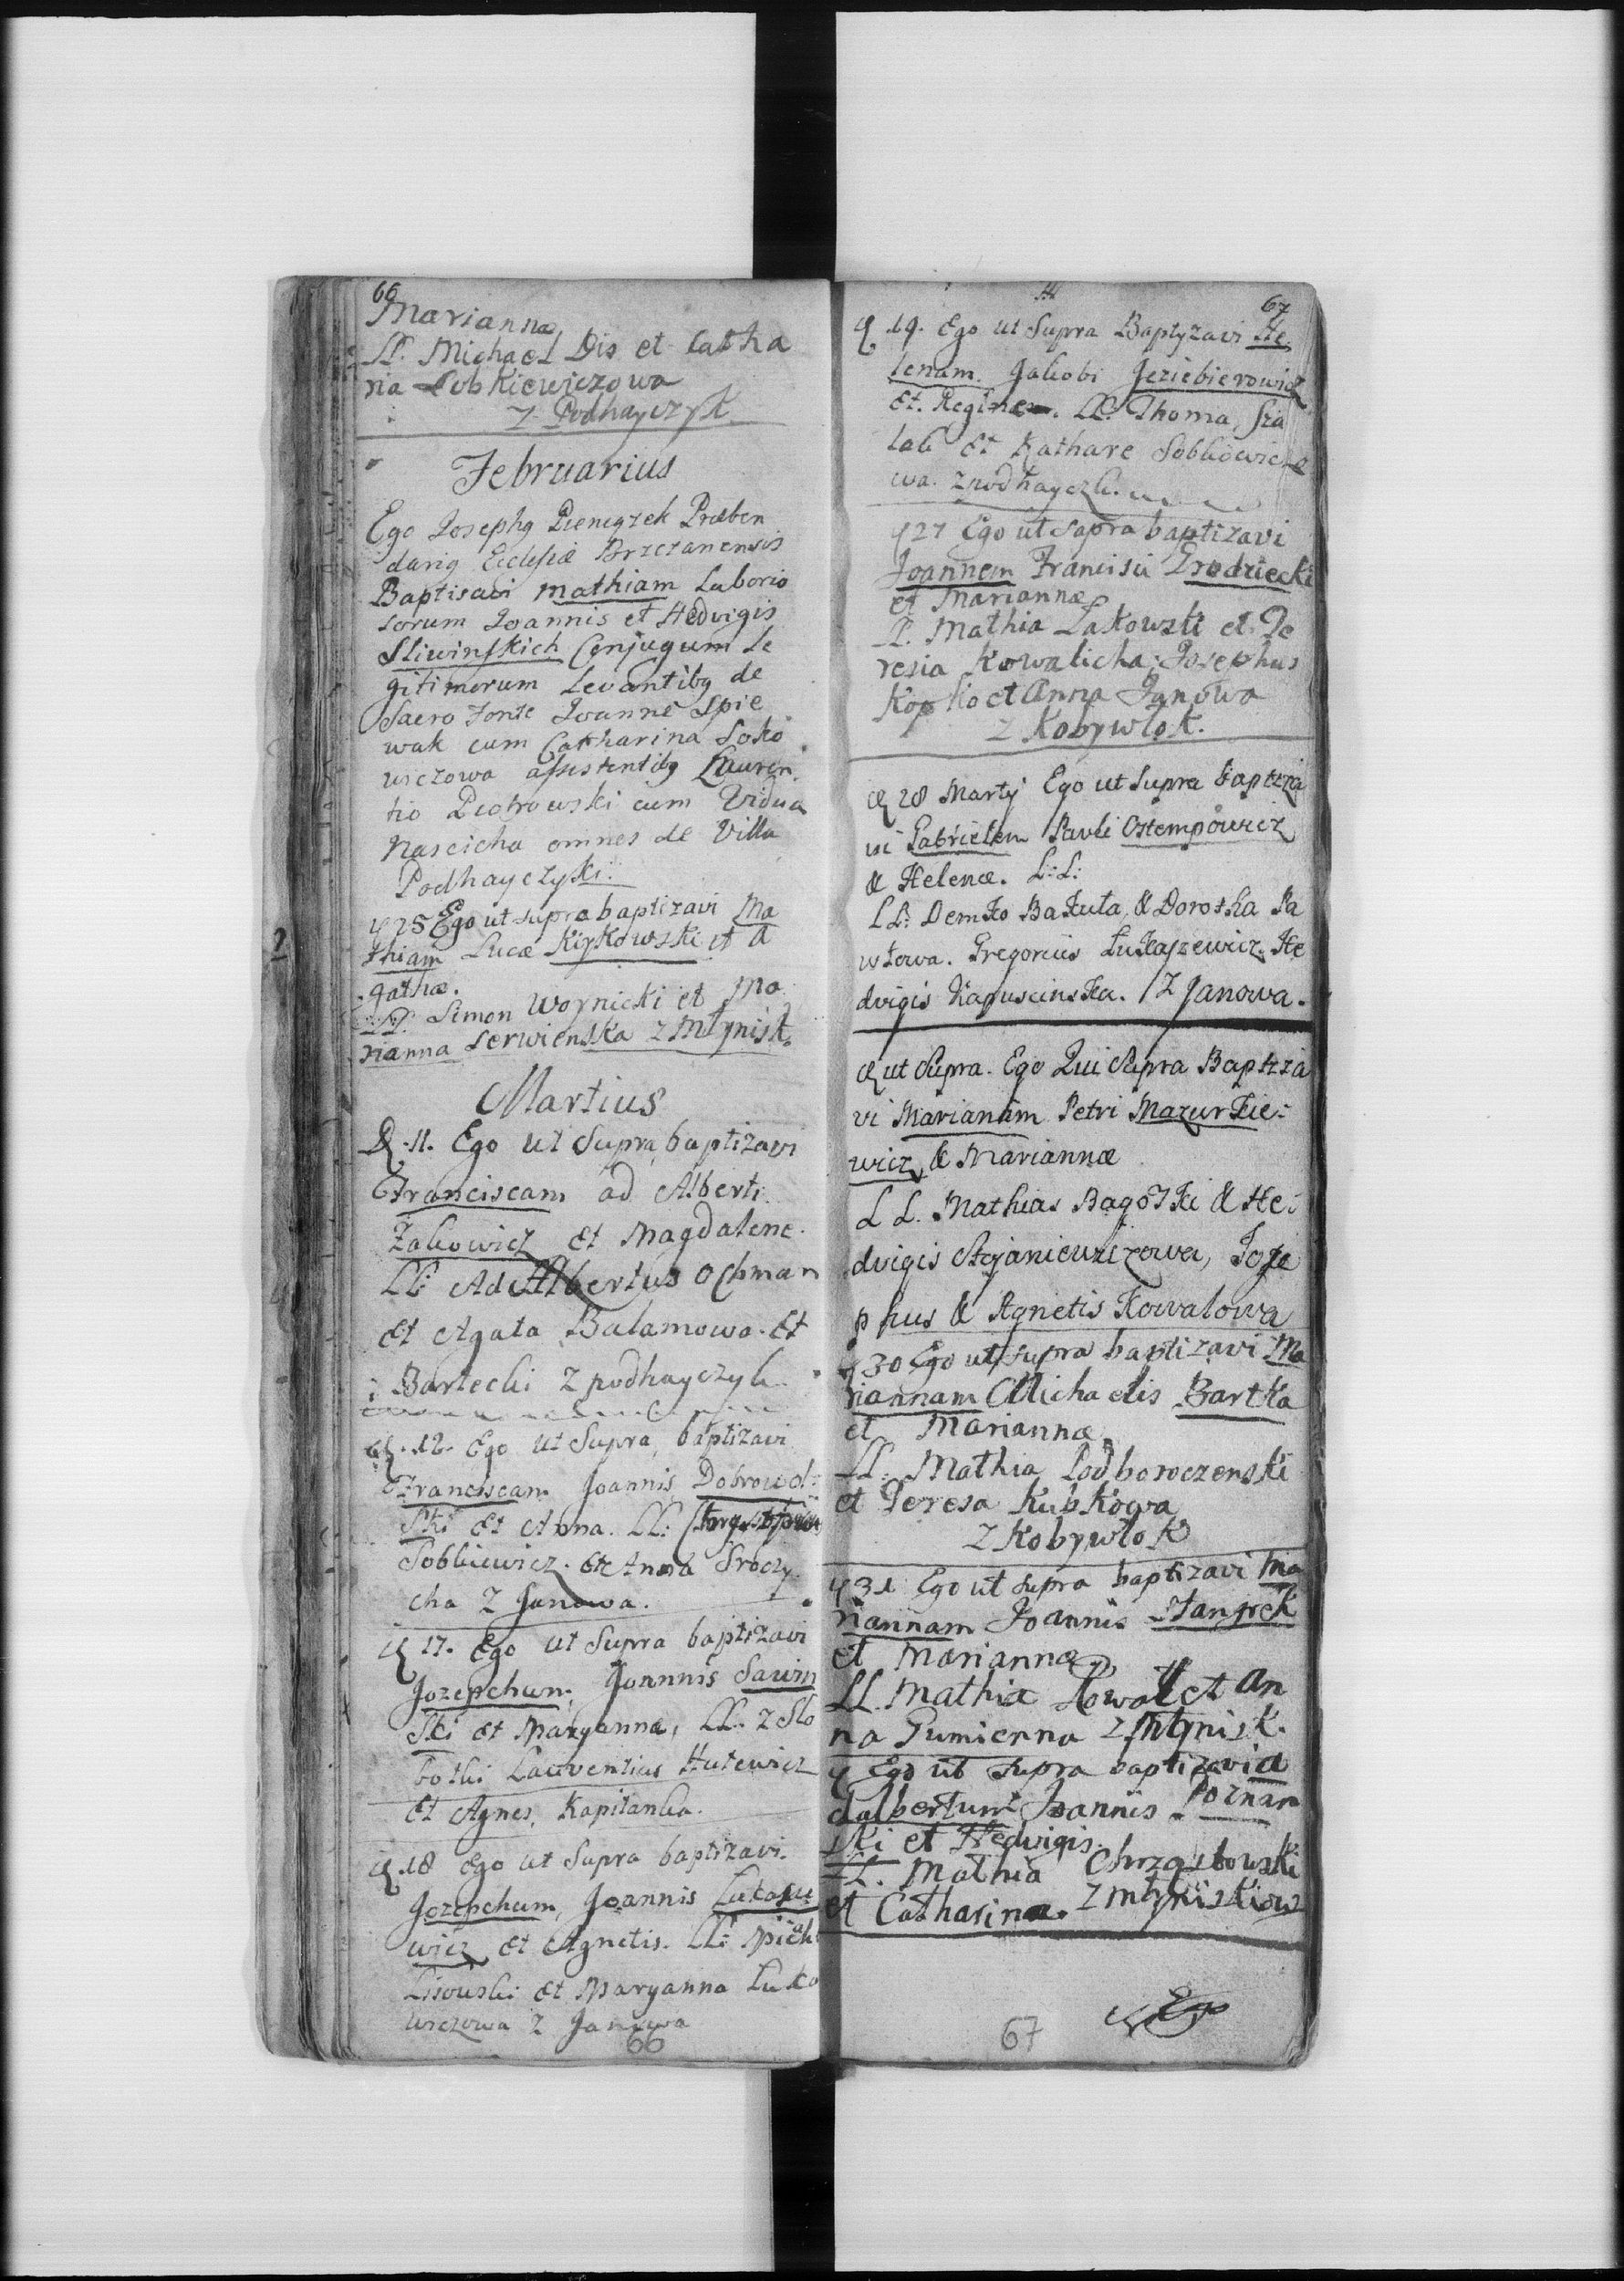 66
Marianna
LL. Michael Dis et Catha
ria Sobkiewiczowa
Z Podhayczyk
Februarius
Ego Josephg Pieniązek Præben
darig Ecclesiæ Brzezanensis
Baptisavi Mathiam Laborio
sorum Joannis et Hedvigis
Sliwinskich Conjugum Le
gitimorum Levantibg de
Sacro Fonte Joanne Spie
wak cum Catharina Soko
wiczowa assistentibg Lauren
tio Piotrowski cum Vidua
Nascicha omnes de Villa
Podhayczyki.
25 Ego ut supra baptizavi Ma
thiam Lucæ Kiykowski et A
gathæ.
LL. Simon Woynicki et Ma
rianna Serwienska z Młynisk.
Martius
D. 11. Ego ut Supra baptizavi
Franciscam ad Alberti
Zakowicz et Magdalene.
LL: AdAlbertus Ochman
et Agata Balamowa. Et
Bartecki z podhayczyk.
12. Ego ut Supra baptizavi
Franciscam Joannis Dobrowol
ski et Anna. LL:
Sobkiewicz. et Anna Sroczy
cha Z Janowa.
17. Ego ut Supra baptizavi
Jozepchum, Joannnis Sawin
ski et Maryanna, LL. z Slo
botki Lauventius Hutewicz
et Agnes, Kapitanka.
18 Ego ut Supra baptizavi.
Jozepchum, Joannis Lukasie
wicz et Agnetis. LL: Mich
Lisowski et Maryanna Luka
wiczowa z Janowa
66
67
19. Ego ut Supra Baptyzavi He
lenam. Jakobi Jeziebierowicz
Et. Reginæ. LL. Thoma, Sza
lak Et Kathare Sobkowiczo
wa. z podhayczk.
27 Ego ut supra baptizavi
Joannem Francisci Drodziecki
et Mariannæ
LL. Mathia Lakowski et Te
resia Kowalicha; Josephus
Kopko et Anna Janowa
z Kobywłok.
28 Martij Ego ut Supra baptiza
vi Gabrielem Pavli Ostempowicz
& Helenæ. L: L:
LL: Demko Bakuła, & Dorotka Pa
włowa. Gregorius Lukaszewicz. He
dvigis Kapuscinska. Z Janowa.
ut Supra. Ego Qui Supra Baptiza
vi Marianam Petri Mazurkie-
wicz, & Mariannæ
LL. Mathias Bagoski & He-
dvigis Stojaniewiczowa, Joze
phus & Agnetis Kowalowa
30 Ego ut supra baptizavi Ma
riannam Michaelis Bartka
et Mariannæ
LL. Mathia Podhoroczenski
et Teresa Kubkowa
z Kobywłok
31 Ego ut supra baptizavi Ma
riannam Joannis Stanjrek
et Mariannæ
LL. Mathia Kowal et An
na Gumienna z Młynisk.
Ego ut supra baptizavi A
dalbertum Joannis Poznan
ski et Hedvigis.
LL. Mathia Chrząstowski
et Catharina. z Młyniskow
67